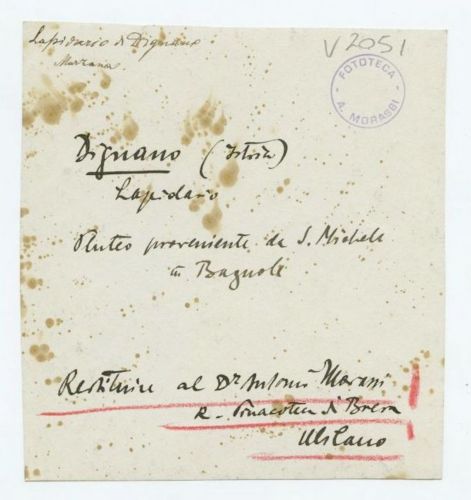 Lapidario di Dignano
V 2051
FOTOTECA
A. MORASSI
Dignano (Istria)
Lapidario
Pluteo proveniente da S. Michele
in Bagnole
Restituire al Dr Antonio Morassi
R. Pinacoteca di Brera
Milano